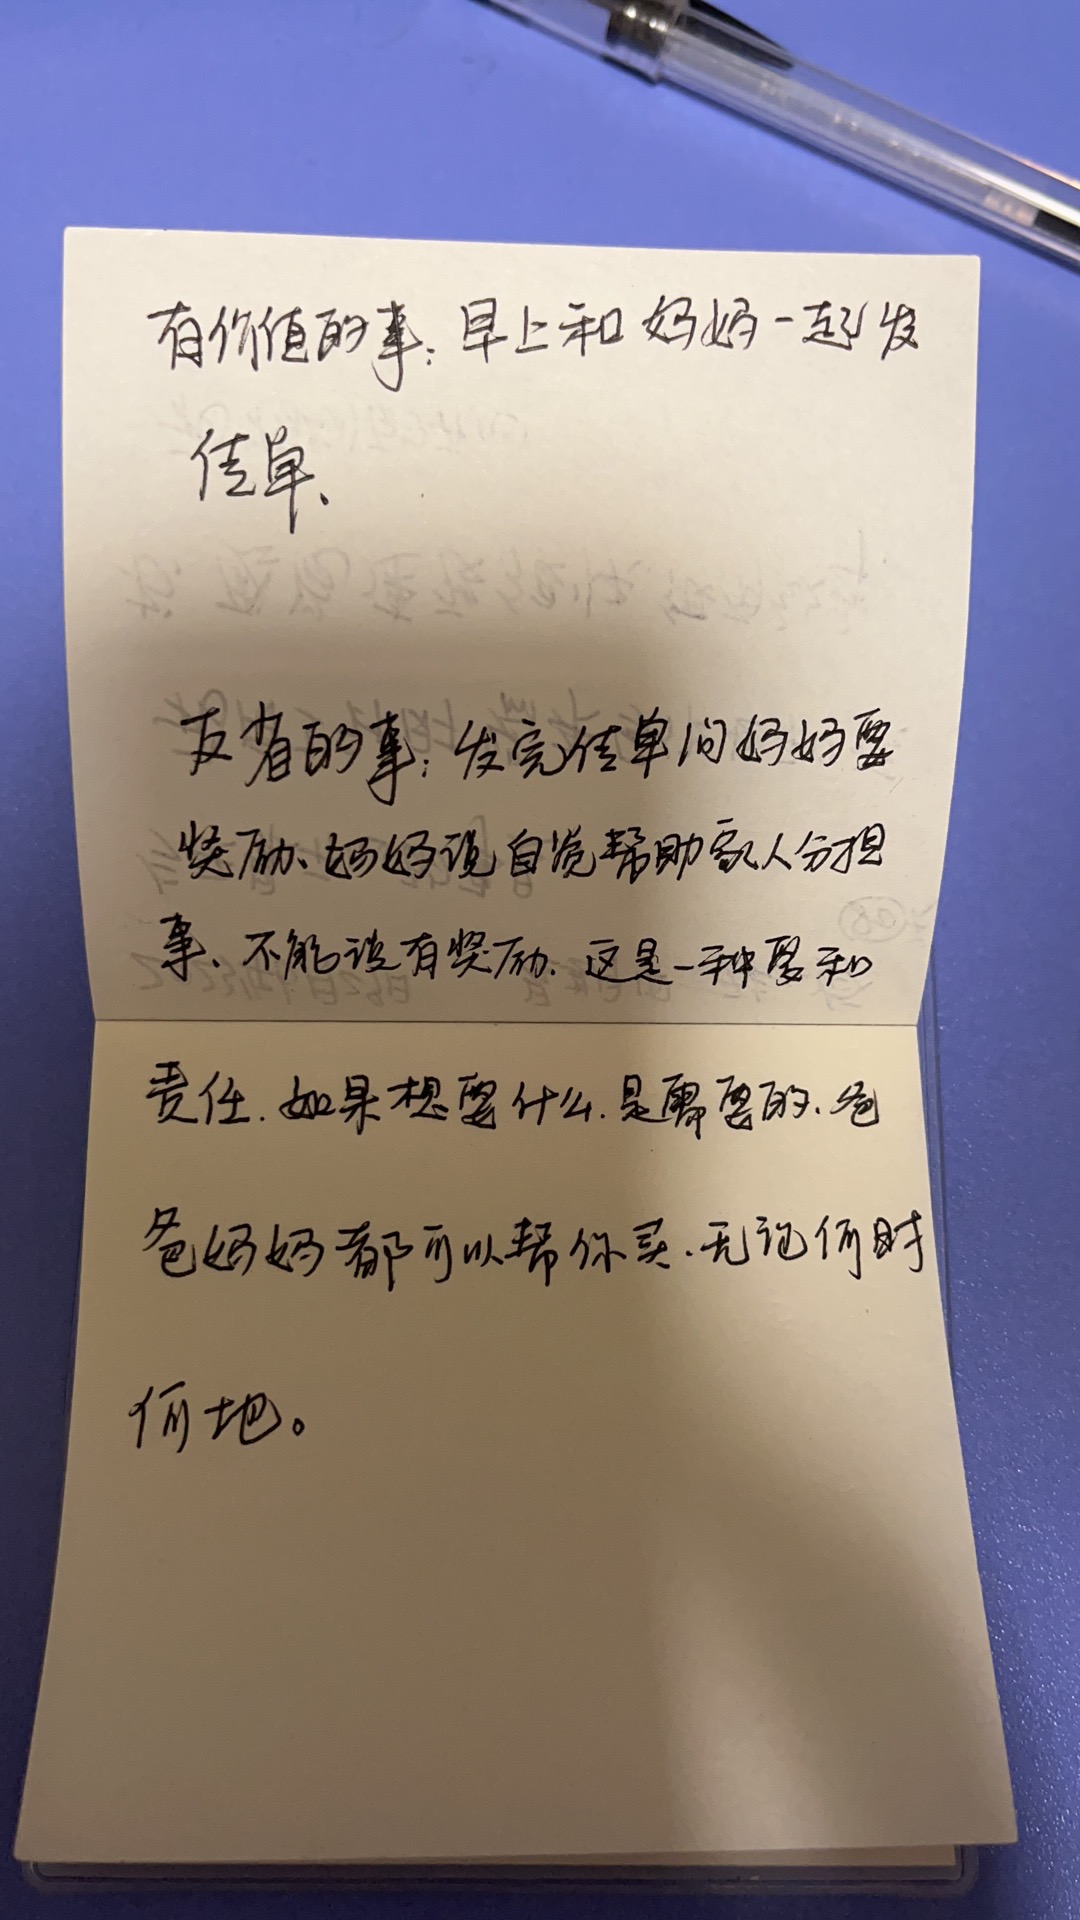 有价值的事：早上和妈妈一起发
传单、
反省的事：发完传单问妈妈要
奖励、妈妈说自觉帮助家人分担
事、不能谈有奖励、这是一种爱和
责任、如果想要什么、是需要的、爸
爸妈妈都可以帮你买、无论何时
何地。